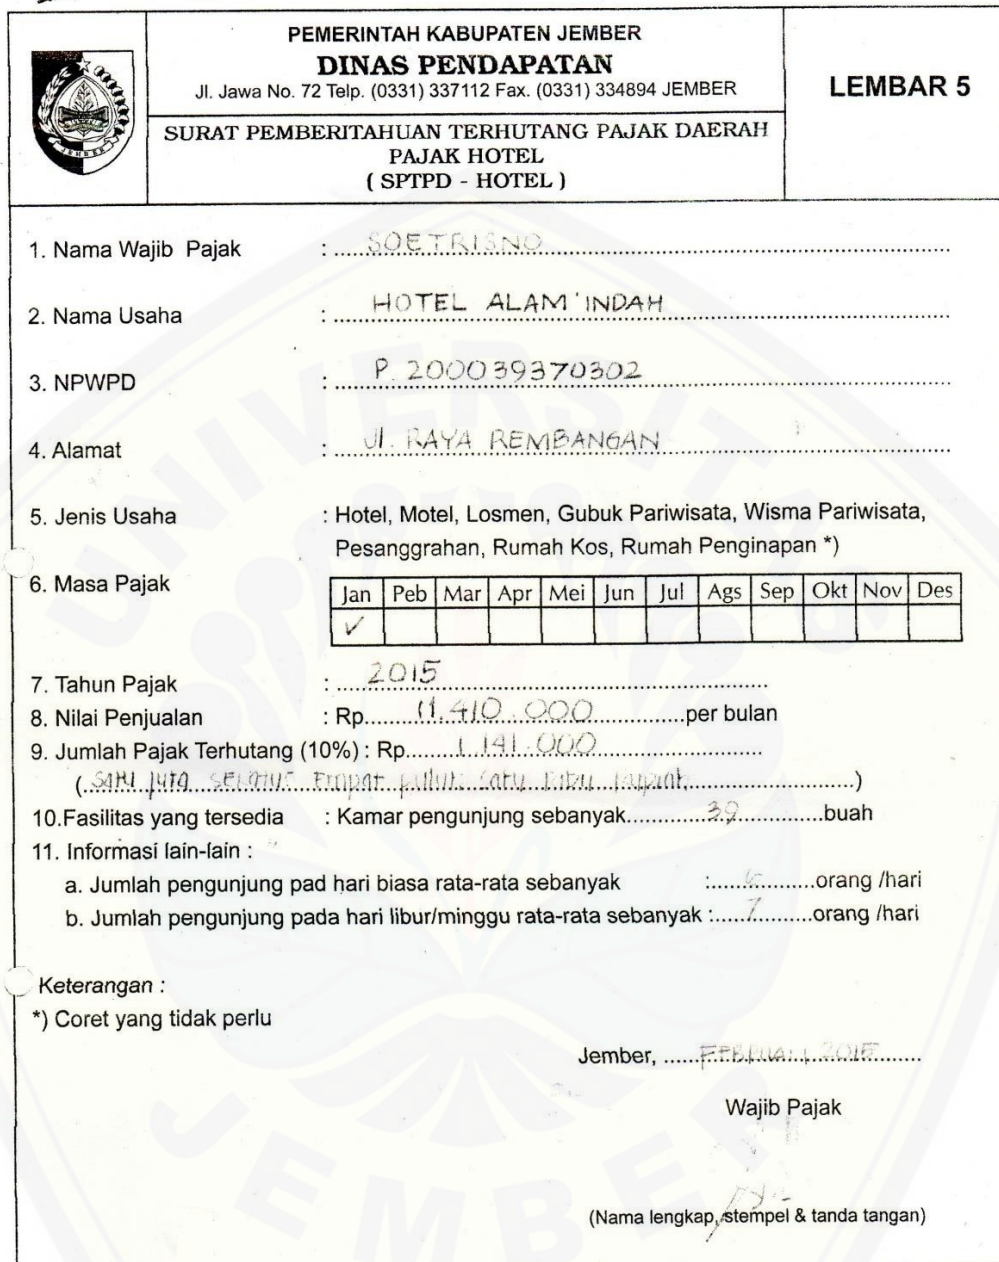 PEMERINTAH KABUPATEN JEMBER
DINAS PENDAPATAN
Jl. Jawa No. 72 Telp. (0331) 337112 Fax. (0331) 334894 JEMBER
LEMBAR 5
JEMBER
SURAT PEMBERITAHUAN TERHUTANG PAJAK DAERAH
PAJAK HOTEL
( SPTPD - HOTEL )
1. Nama Wajib Pajak : SOETRISNO
2. Nama Usaha : HOTEL ALAM INDAH
3. NPWPD : P. 200039370302
4. Alamat : Jl. RAYA REMBANGAN
5. Jenis Usaha : Hotel, Motel, Losmen, Gubuk Pariwisata, Wisma Pariwisata,
Pesanggrahan, Rumah Kos, Rumah Penginapan *)
6. Masa Pajak
Jan Peb Mar Apr Mei Jun Jul Ags Sep Okt Nov Des
✓
7. Tahun Pajak : 2015
8. Nilai Penjualan : Rp. 11.410.000 per bulan
9. Jumlah Pajak Terhutang (10%) : Rp. 1.141.000
(Satu juta seratus Empat puluh satu Ribu rupiah)
10.Fasilitas yang tersedia : Kamar pengunjung sebanyak 39 buah
11. Informasi lain-lain :
a. Jumlah pengunjung pad hari biasa rata-rata sebanyak : orang /hari
b. Jumlah pengunjung pada hari libur/minggu rata-rata sebanyak : 7 orang /hari
Keterangan :
*) Coret yang tidak perlu
Jember, FEBRUARI 2015
Wajib Pajak
(Nama lengkap, stempel & tanda tangan)
UNIVERSITAS
JEMBER